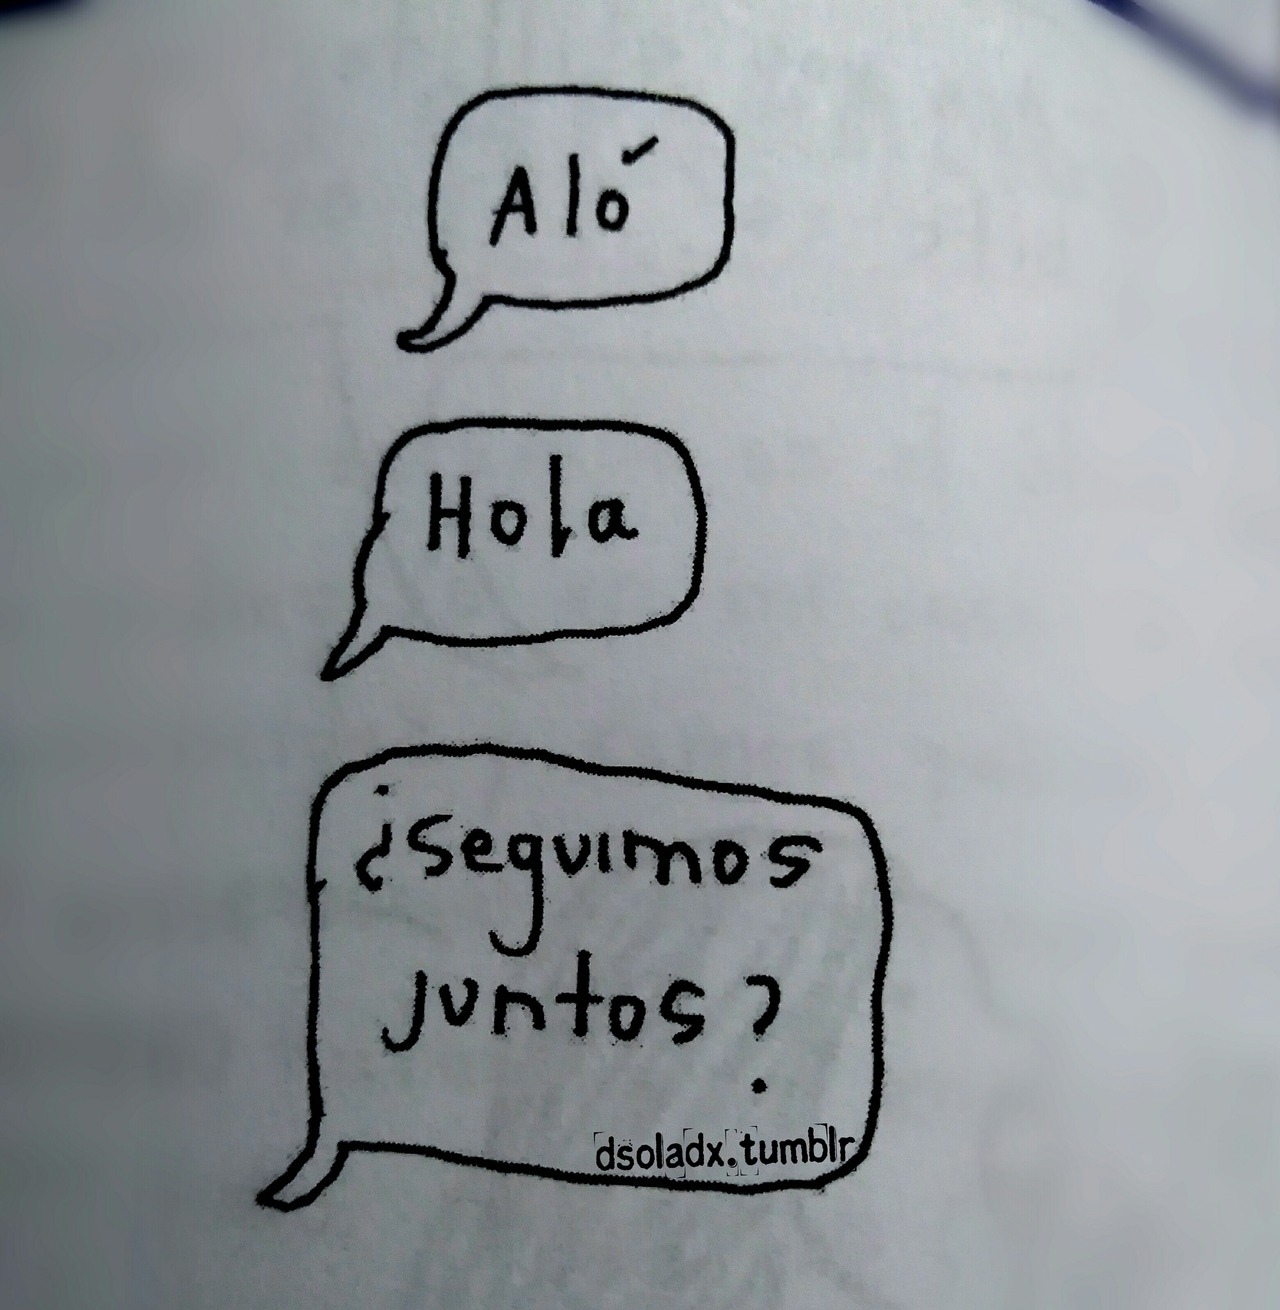 Aló
Hola
¿seguimos
juntos?
dsoladx.tumblr